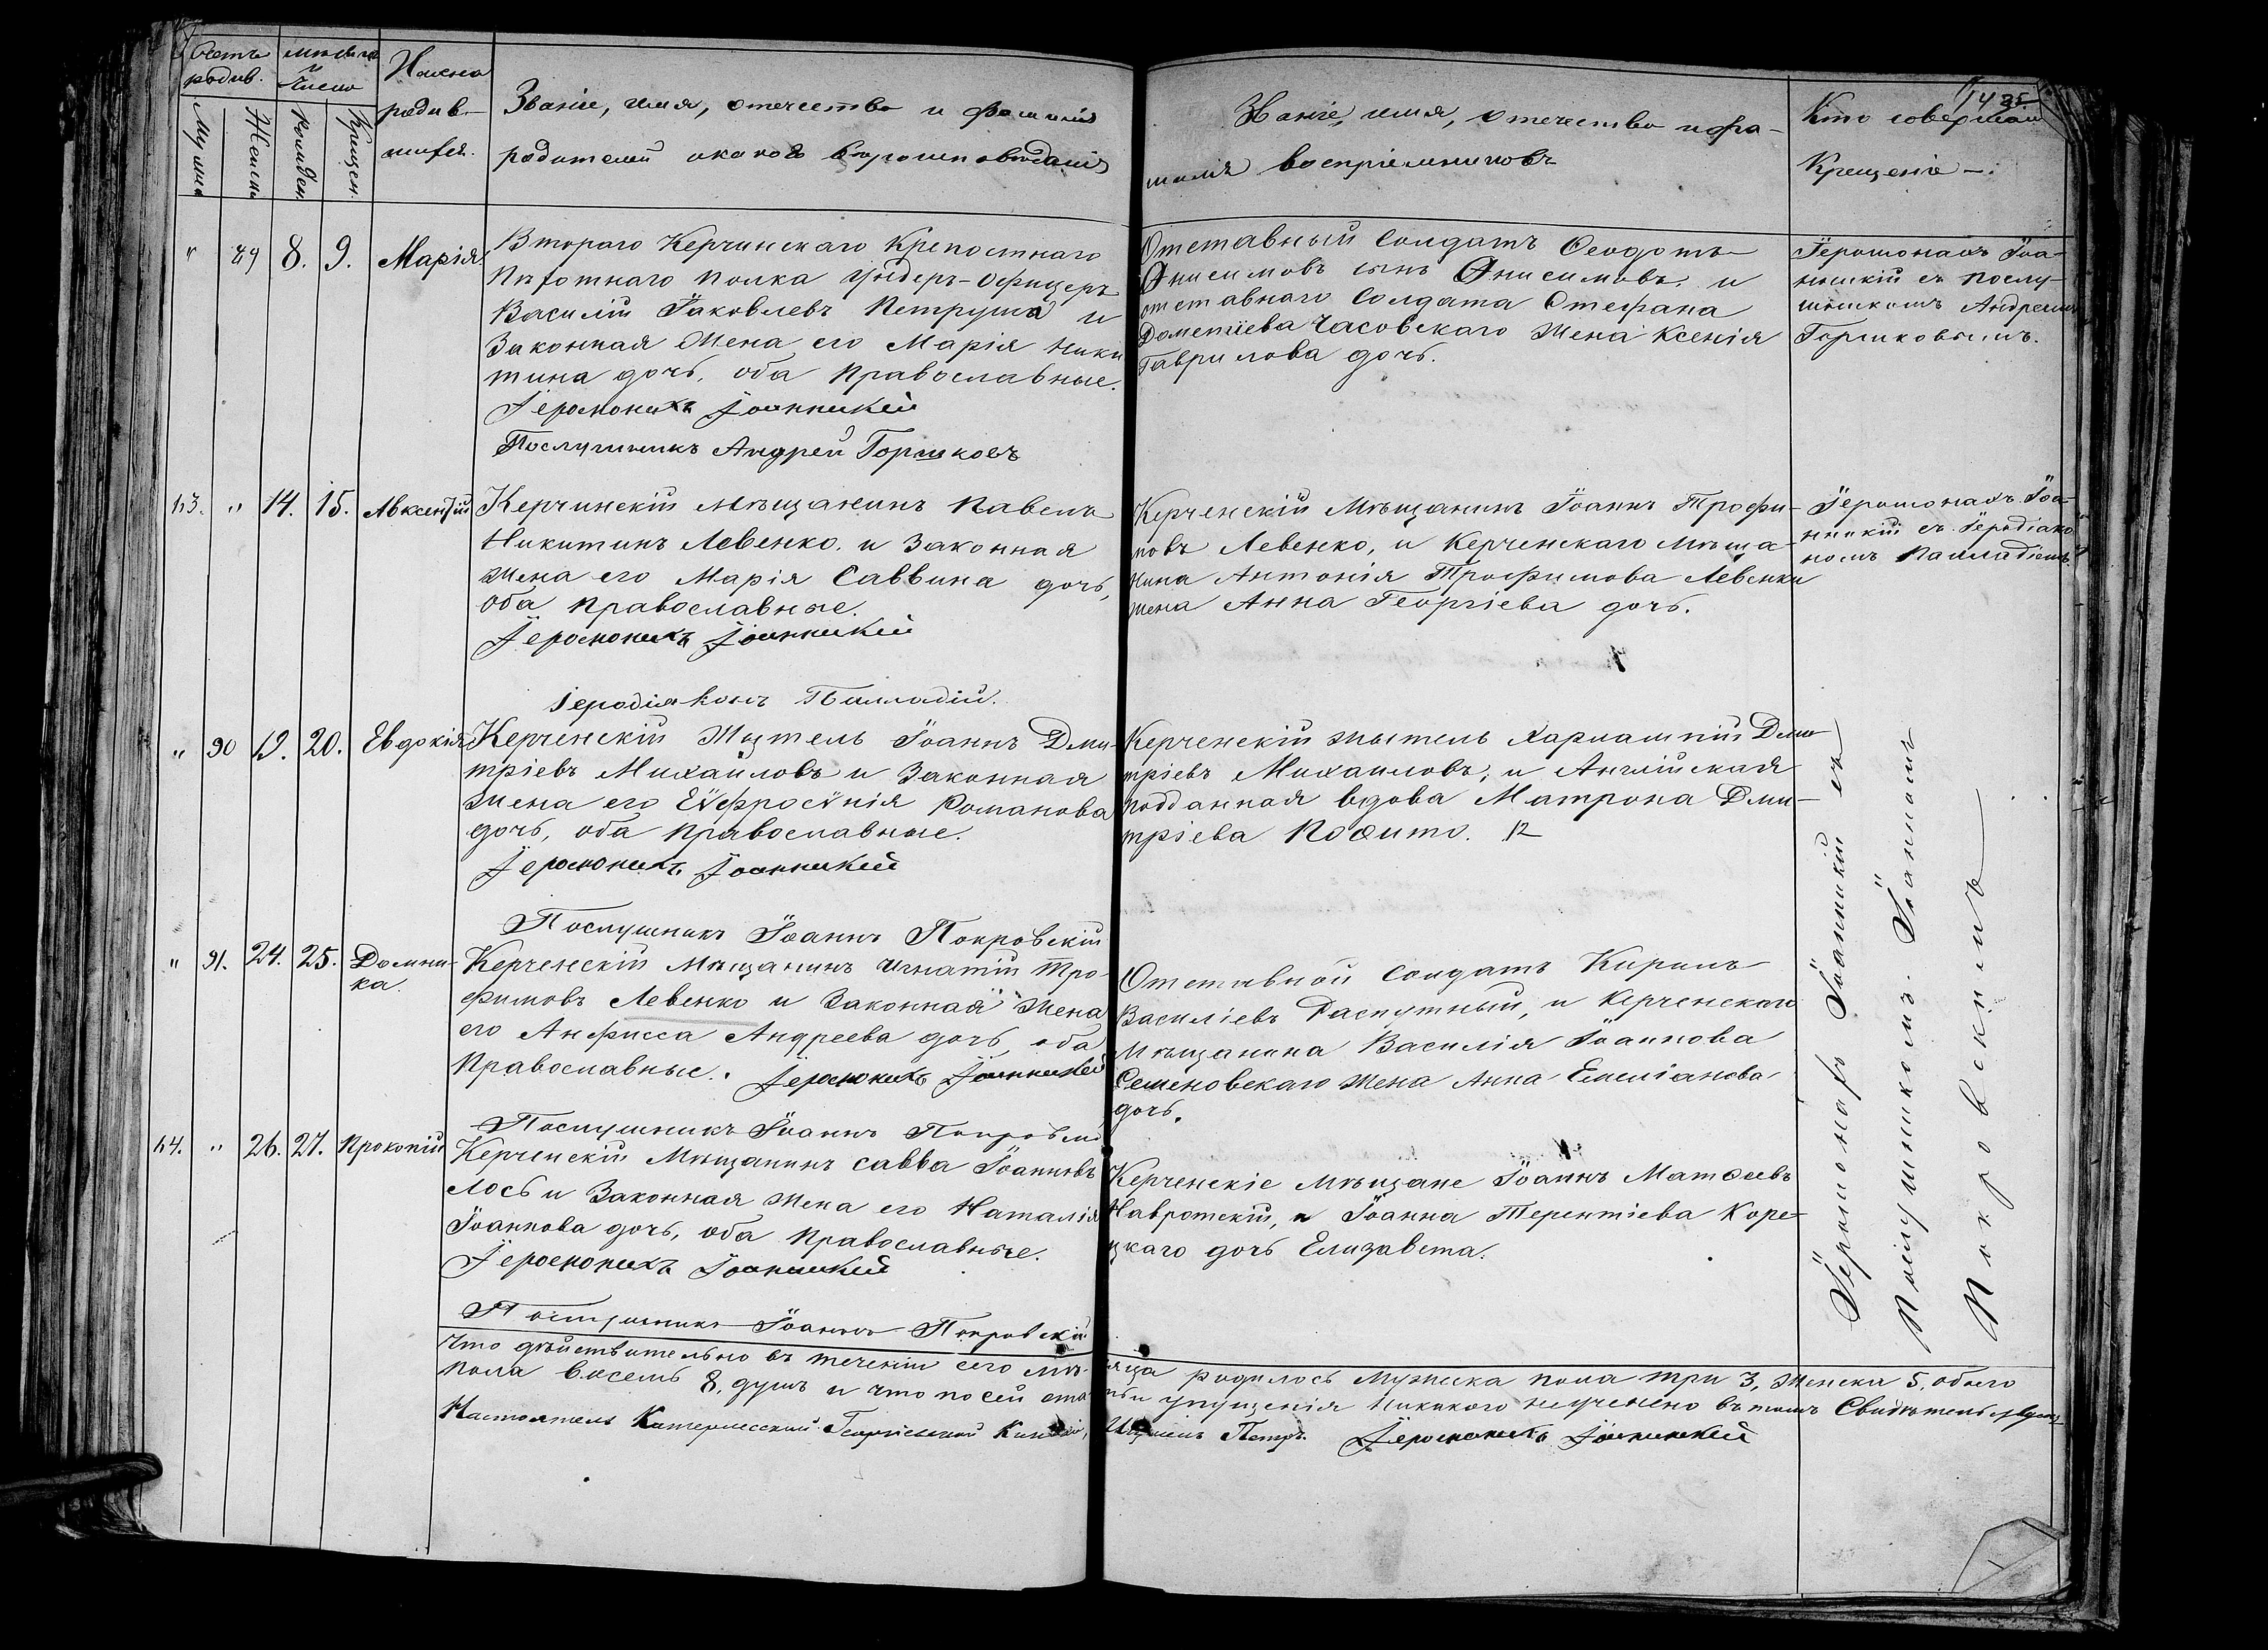 Счетъ родив.
мѣсяцъ и число
Имена родив-шихся.
Званіе, имя, отечество и фамилія
родителей и какого вѣроисповѣданія
Званіе, имя, отечество и фа-
милія воспріемниковъ
Кто совершалъ
Крещеніе
Муж.
Женск.
Рожден.
Крещен.
"
89
8.
9.
Марія
Втораго Керчинскаго Крепостнаго
Пѣхотнаго Полка Ундеръ-Офицеръ
Василій Іаковлевъ Петруша и
Законная Жена его Марія Ники
тина дочь, оба Православные.
Іеромонахъ Іоанникій
Послушникъ Андрей Горшковъ
Отставный Солдатъ Ѳеодотъ
Анисимовъ сынъ Анисимовъ, и
отставнаго Солдата Стефана
Дометіева Часовскаго Жена Ксенія
Гаврилова дочь.
Іеромонахъ Іоа-
нникій съ послу-
шникомъ Андреемъ
Горшковымъ.
63.
"
14.
15.
Авксентій
Керчинскій Мѣщанинъ Павелъ
Никитинъ Левенко, и Законная
Жена его Марія Саввина дочь,
оба Православные.
Іеромонахъ Іоанникій
Іеродіаконъ Палладій.
Керченскій Мѣщанинъ Іоаннъ Трофи-
мовъ Левенко, и Керченскаго Мѣща-
нина Антонія Трофимова Левенки
жена Анна Георгіева дочь.
Іеромонахъ Іоа-
нникій съ Іеродіако-
номъ Палладіемъ
"
90
19.
20.
Евдокія
Керченскій Житель Іоаннъ Дми-
тріевъ Михаиловъ и Законная
Жена его Еѵфросѵнія Романова
дочь, оба Православные.
Іеромонахъ Іоанникій
Послушникъ Іоаннъ Покровскій
Керченскій жытель Харлампій Дми
тріевъ Михаиловъ, и Англійская
подданная вдова Матрона Дми-
тріева
"
91.
24.
25.
Домни-
ка.
Керченскій Мѣщанинъ Игнатій Тро-
фимовъ Левенко и Законная Жена
его Анфисса Андреева дочь, оба
Православные. Іеромонахъ Іоанникій
Послушникъ Іоаннъ Покровскі
Отставной Солдатъ Кирилъ
Василіевъ Распутный, и Керченскаго
Мѣщанина Василія Іоаннова
Семеновскаго Жена Анна Емеліанова
дочь.
64.
"
26.
27.
Прокопій
Керченскій Мѣщанинъ Савва Іоанновъ
Лось и Законная Жена его Наталія
Іоаннова дочь, оба Православные.
Іеромонахъ Іоанникій
Послушникъ Іоаннъ Покровскій
Керченскіе Мѣщане Іоаннъ Матѳеевъ
Навротскій, и Іоанна Терентіева Коре-
цкаго дочь Елизавета.
Іеромонахъ Іоанникій съ
Послушникомъ Іоанномъ
Покровскимъ
Что дѣйствительно въ теченіи сего мѣ-сяца родилось Мужеска пола три 3, Женска 5, обоего
пола восемь 8, душъ и что по сей статьи упущенія никакого неучинено въ томъ Свидѣтельствуемъ
Настоятель Катерлесской Георгіевской Игуменъ Петръ. Іеромонахъ Іоанникій